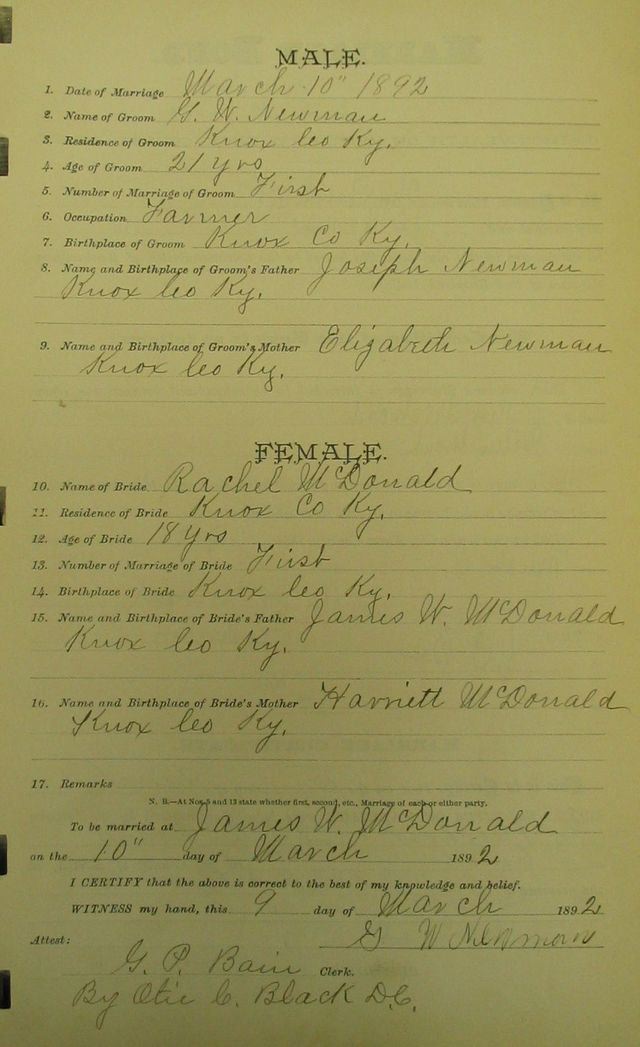 MALE.
1. Date of Marriage March 10" 1892
2. Name of Groom G. W. Newman
3. Residence of Groom Knox Co Ky.
4. Age of Groom 21 yrs
5. Number of Marriage of Groom First
6. Occupation Farmer
7. Birthplace of Groom Knox Co Ky.
8. Name and Birthplace of Groom's Father Joseph Newman
Knox Co Ky.
9. Name and Birthplace of Groom's Mother Elizabeth Newman
Knox Co Ky.
FEMALE.
10. Name of Bride Rachel McDonald
11. Residence of Bride Knox Co Ky.
12. Age of Bride 18 yrs
13. Number of Marriage of Bride First
14. Birthplace of Bride Knox Co Ky.
15. Name and Birthplace of Bride's Father James W. McDonald
Knox Co Ky.
16. Name and Birthplace of Bride's Mother Harriett McDonald
Knox Co Ky.
17. Remarks
N. B.—At Nos. 5 and 13 state whether first, second, etc., Marriage of each or either party.
To be married at James W. McDonald
on the 10" day of March 1892
I CERTIFY that the above is correct to the best of my knowledge and belief.
WITNESS my hand, this 9 day of March 1892
G W Newman
Attest:
G. P. Bain Clerk.
By Otie C. Black D.C.